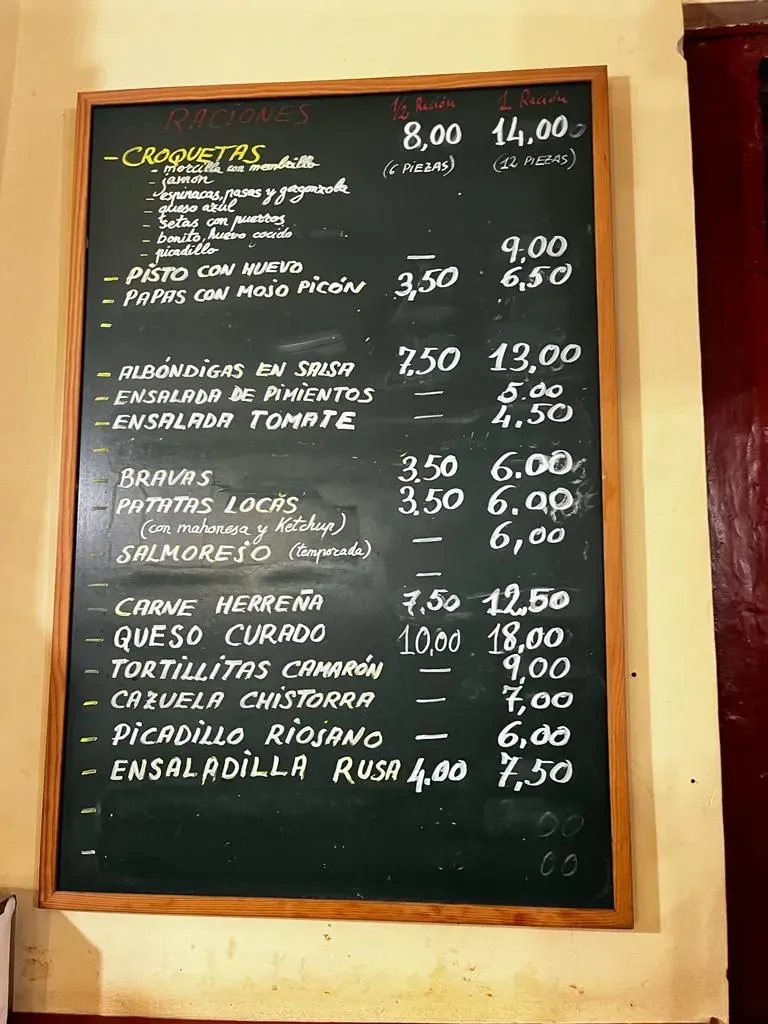 RACIONES ½ Ración 1 Ración
- CROQUETAS 8,00 14,00
(6 PIEZAS) (12 PIEZAS)
- morcilla con membrillo
- jamón
- espinacas, pasas y gorgonzola
- queso azul
- setas con puerros
- bonito, huevo cocido
- picadillo
- PISTO CON HUEVO — 9,00
- PAPAS CON MOJO PICÓN 3,50 6,50
-
- ALBÓNDIGAS EN SALSA 7,50 13,00
- ENSALADA DE PIMIENTOS — 5.00
- ENSALADA TOMATE — 4.50
-
- BRAVAS 3.50 6.00
- PATATAS LOCAS 3.50 6.00
(con mahonesa y Ketchup)
- SALMOREJO (temporada) — 6,00
- —
- CARNE HERREÑA 7.50 12,50
- QUESO CURADO 10,00 18,00
- TORTILLITAS CAMARÓN — 9,00
- CAZUELA CHISTORRA — 7,00
- PICADILLO RIOJANO — 6,00
- ENSALADILLA RUSA 4.00 7,50
- 00
- 00